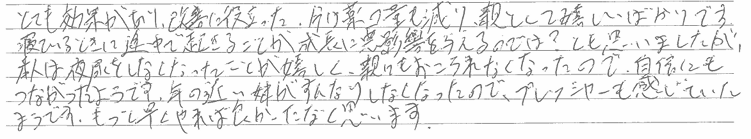 とても効果があり、改善に役立った。付け薬の量も減り、親として嬉しいばかりです
寝ているときに途中で起きることが成長に悪影響を与えるのでは？とも思いましたが、
本人は夜尿をしなくなったことが嬉しく、親にもおこられなくなったので、自信にも
つながったようです。年の近い妹がすんなりしなくなったので、プレッシャーも感じていた
ようです。もっと早くやれば良かったなと思います。